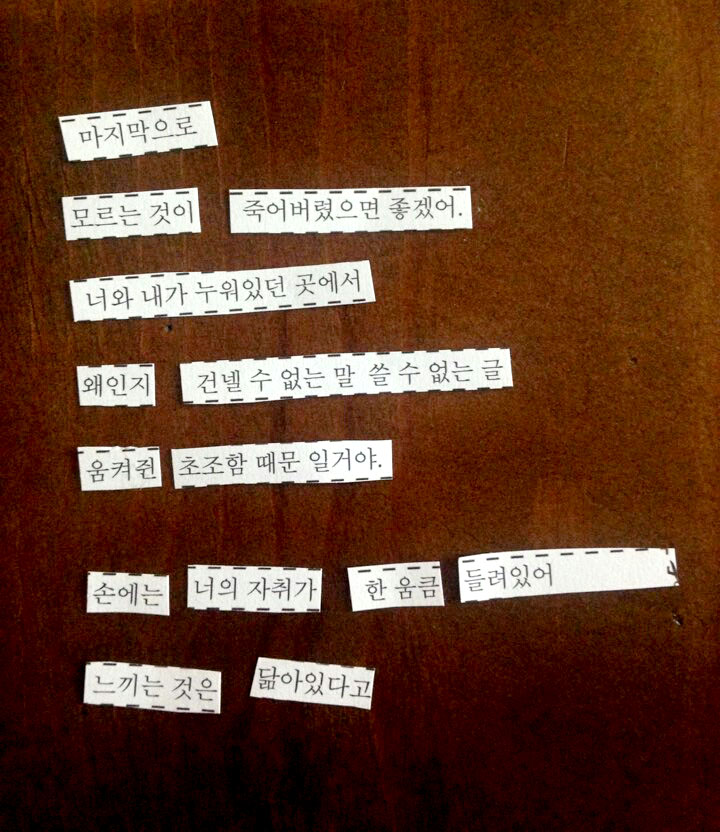 마지막으로
모르는 것이 죽어버렸으면 좋겠어.
너와 내가 누워있던 곳에서
왜인지 건넬 수 없는 말 쓸 수 없는 글
움켜쥔 초조함 때문 일거야.
손에는 너의 자취가 한 움큼 들려있어
느끼는 것은 닮아있다고